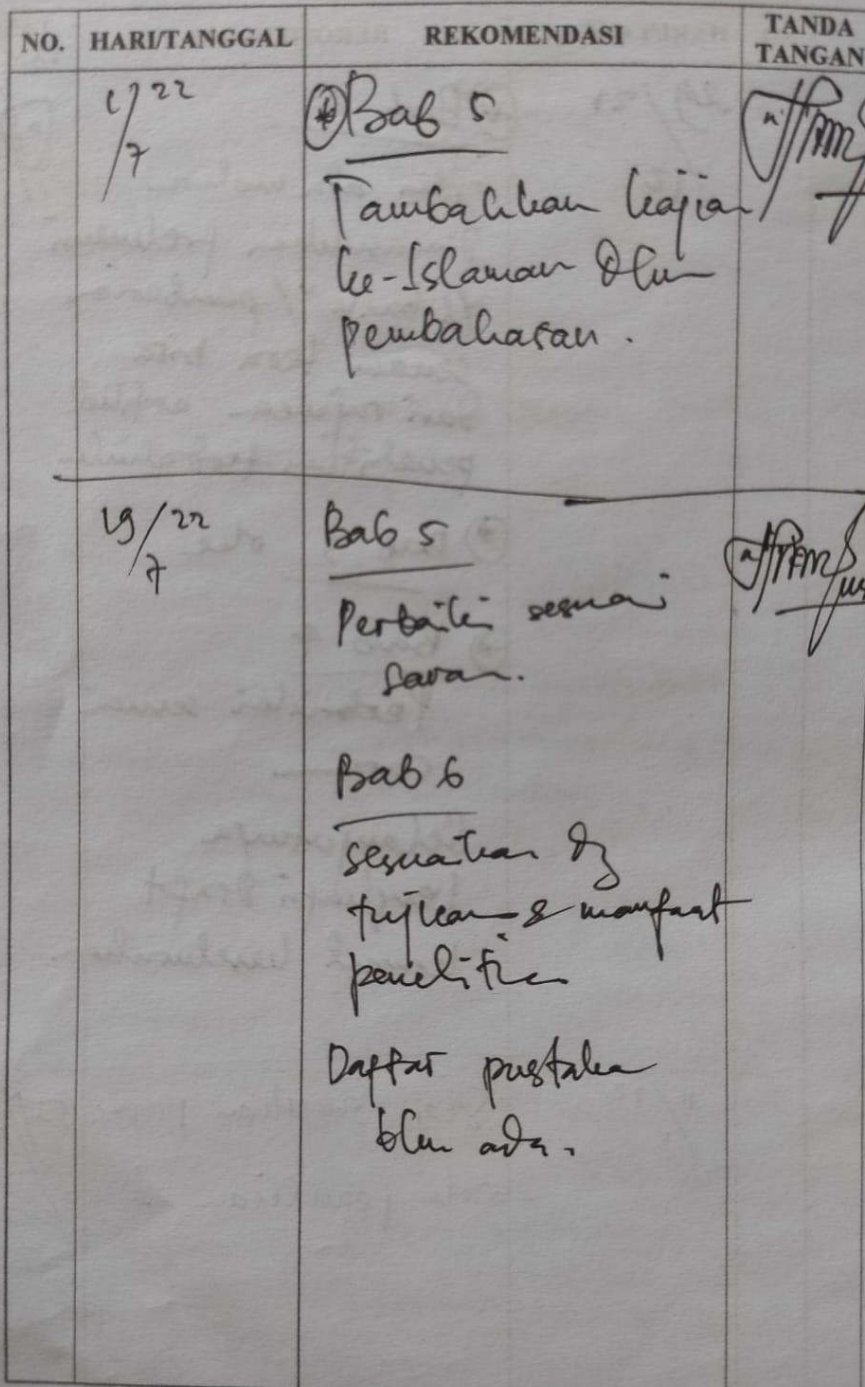 NO. HARI/TANGGAL REKOMENDASI TANDA TANGAN
/7 22
* Bab 5
Tambahkan kajian
ke-Islaman dlm
pembahasan.
19/7 22
Bab 5
Perbaiki sesuai
saran.
Bab 6
sesuaikan dg
tujuan & manfaat
penelitian
Daftar pustaka
blm ada.